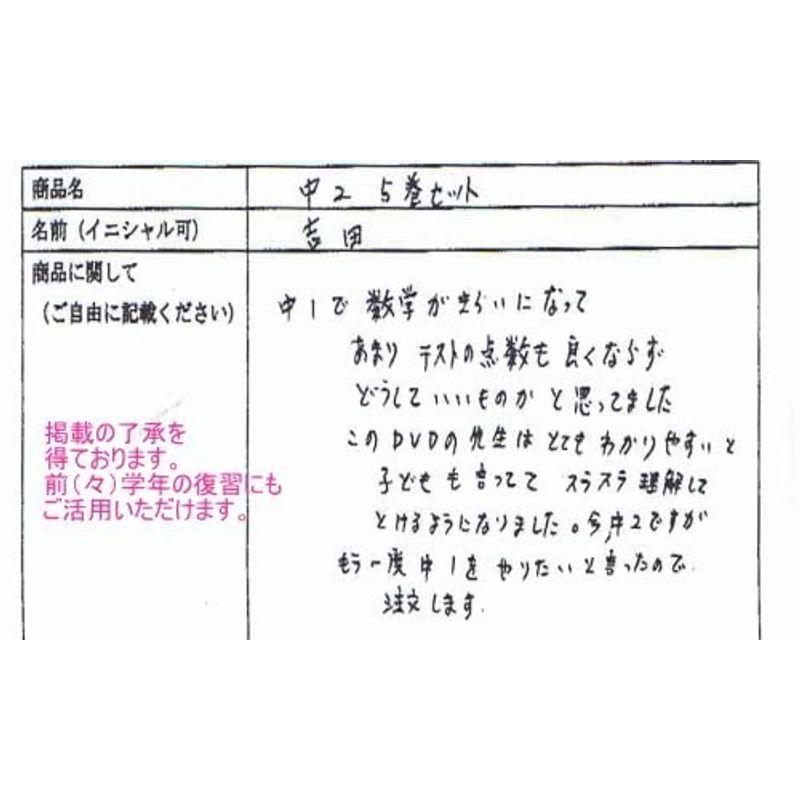 商品名
中2 5巻セット
名前（イニシャル可）
吉田
商品に関して
（ご自由に記載ください）
中1で 数学がきらいになって
あまり テストの点数も 良くならず
どうしていいものか と 思ってました
このDVDの先生は とても わかりやすい と
子ども も 言ってて スラスラ 理解して
とけるようになりました。今、中2ですが
もう一度 中1を やりたい と 言ったので.
注文します.
掲載の了承を
得ております。
前（々）学年の復習にも
ご活用いただけます。